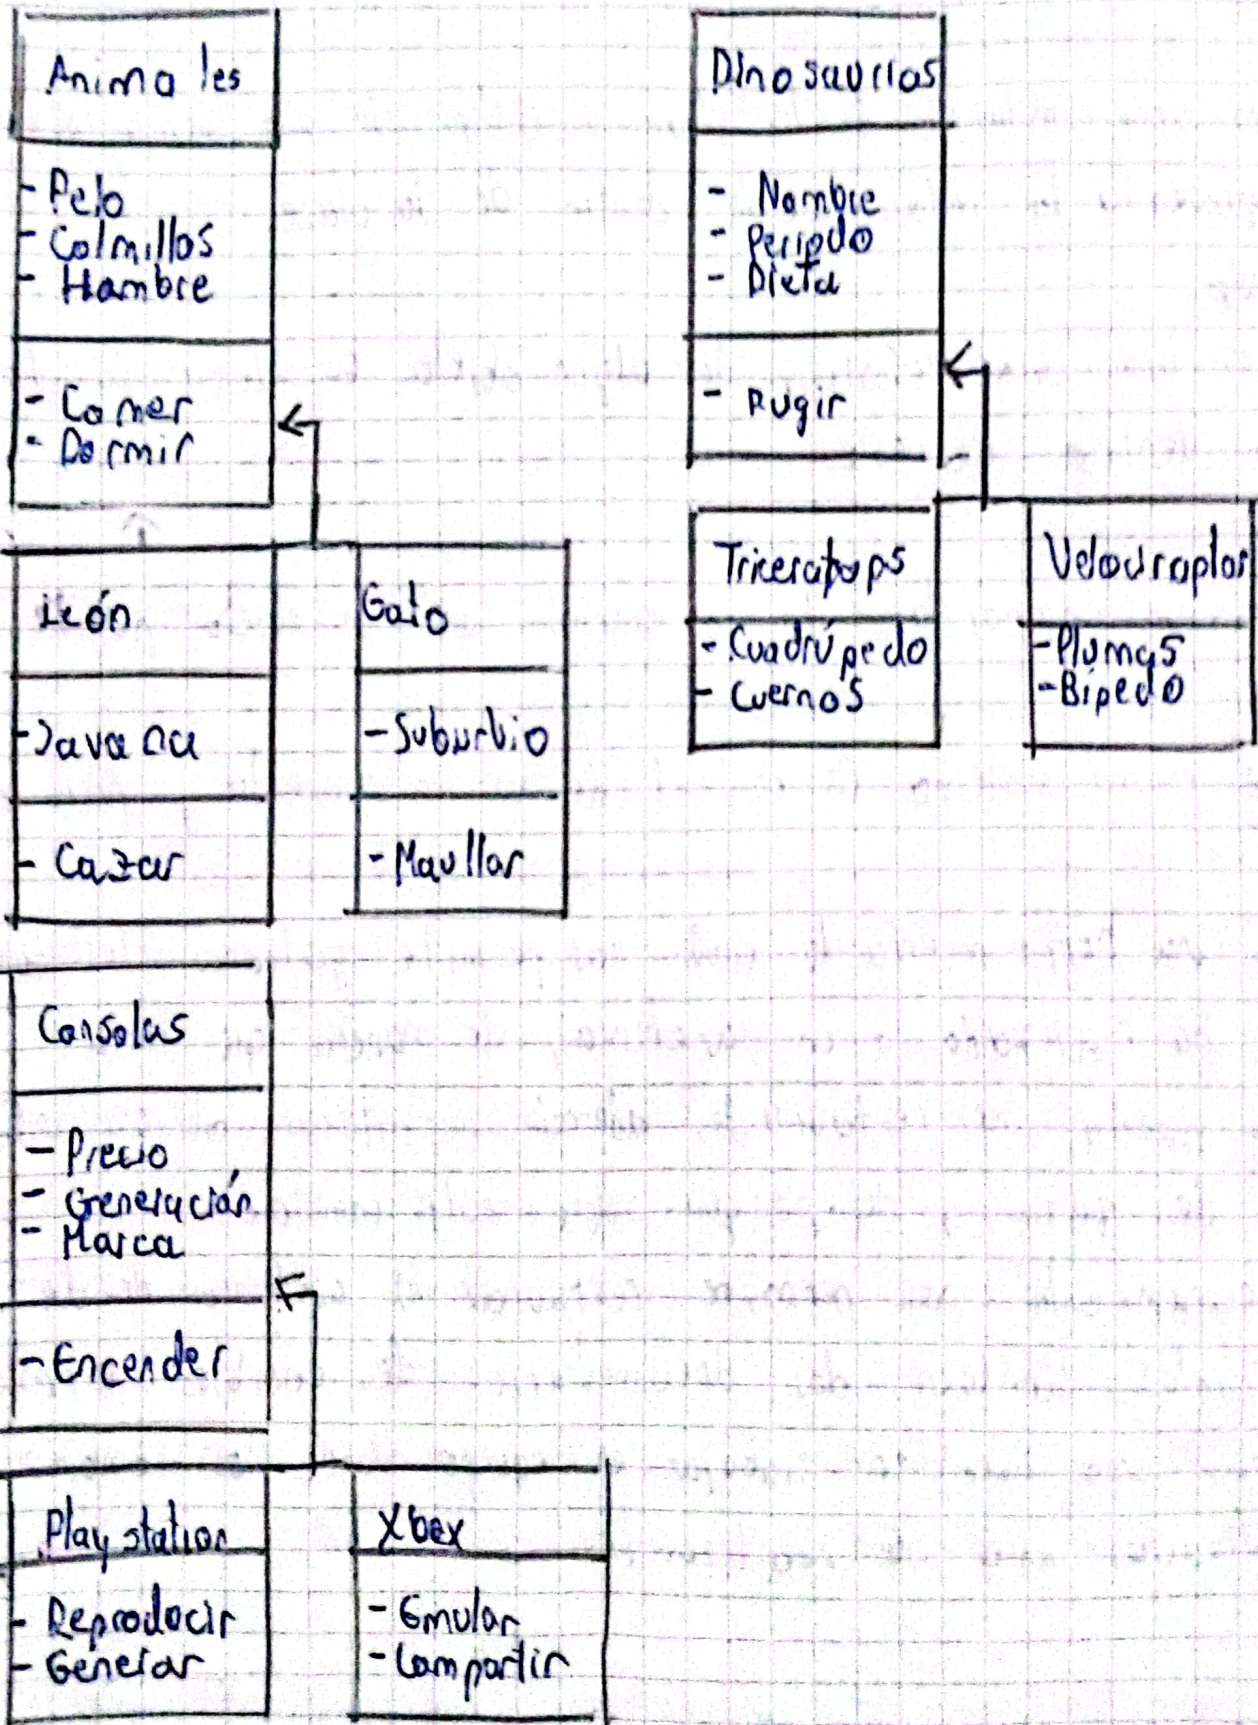 Animales
- Pelo
- Colmillos
- Hambre
- Comer
- Dormir
León
- Savana
- Cazar
Gato
- Suburbio
- Maullar
Dinosaurios
- Nombre
- Periodo
- Dieta
- Rugir
Triceratops
- Cuadrúpedo
- Cuernos
Velociraptor
- Plumas
- Bípedo
Consolas
- Precio
- Generación
- Marca
- Encender
Play station
- Reproducir
- Generar
Xbox
- Emular
- Compartir